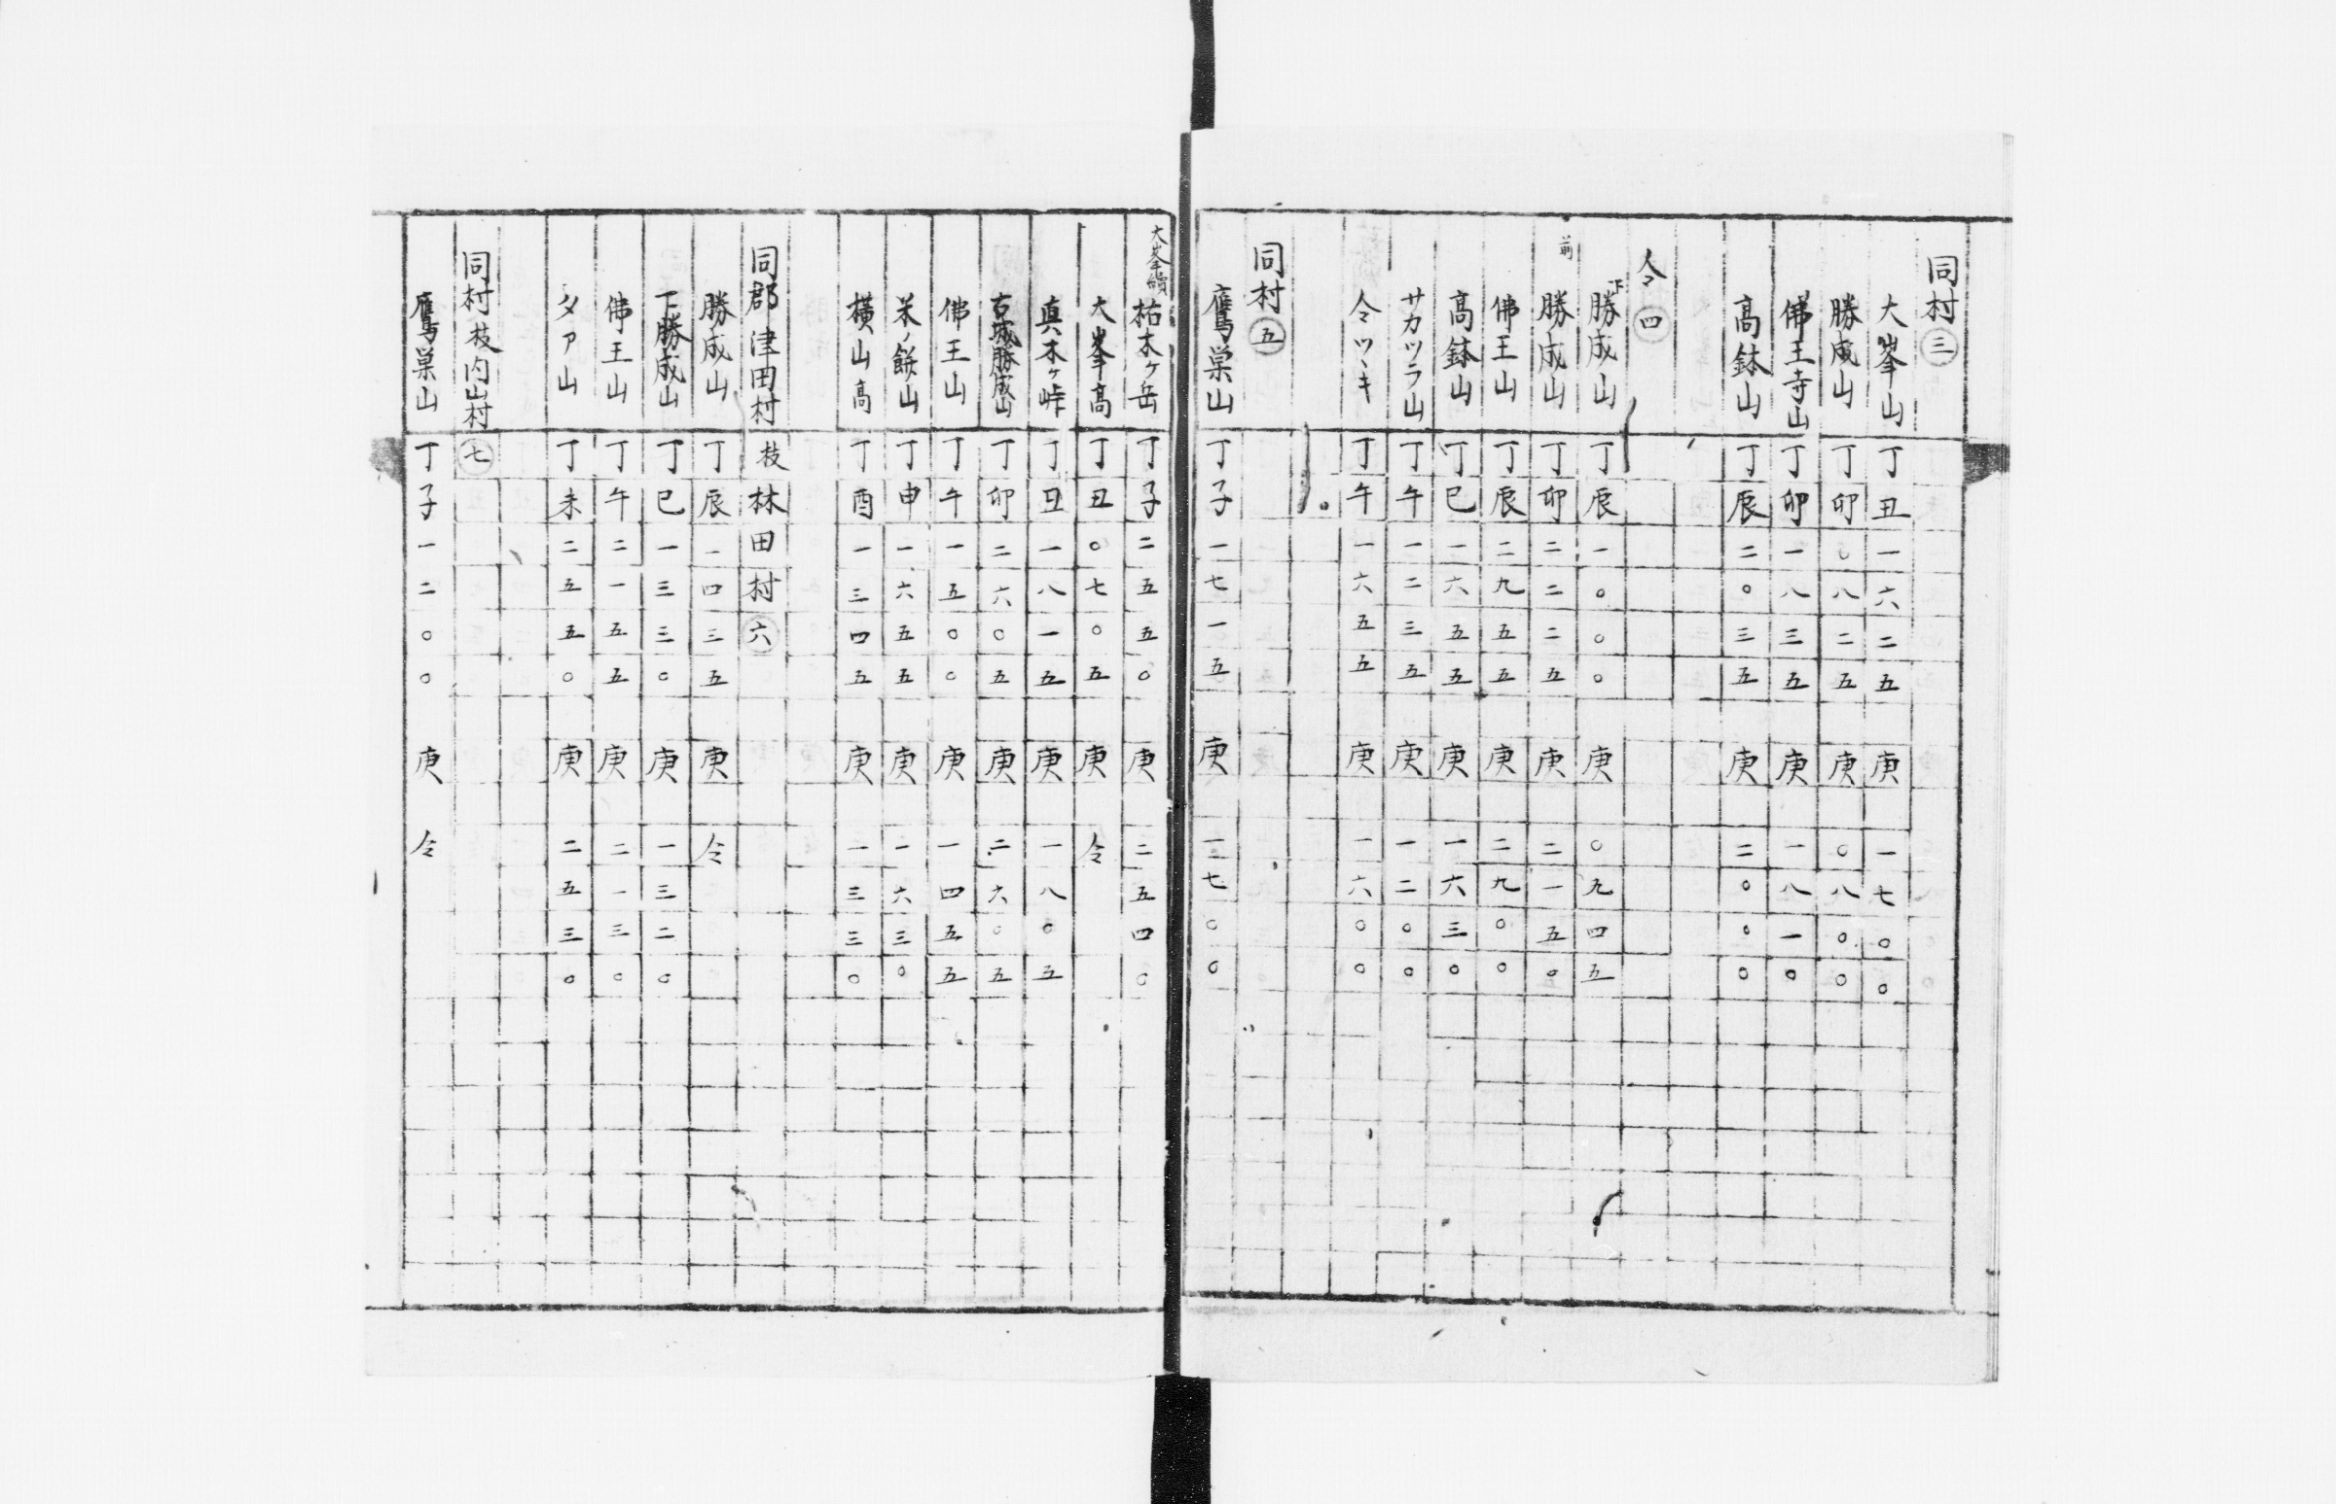 同村 三
大峯山 丁 丑 一 六 二 五 庚 一 七 〇 〇
勝成山 丁 卯 〇 八 二 五 庚 〇 八 〇 〇
佛王寺山 丁 卯 一 八 三 五 庚 一 八 一 〇
高鉢山 丁 辰 二 〇 三 五 庚 二 〇 〇 〇
仝 四
下勝成山 丁 辰 一 〇 〇 〇 庚 〇 九 四 五
前 勝成山 丁 卯 二 二 二 五 庚 二 一 五 〇
佛王山 丁 辰 二 九 五 五 庚 二 九 〇 〇
高鉢山 丁 巳 一 六 五 五 庚 一 六 三 〇
サカツラ山 丁 午 一 二 三 五 庚 一 二 〇 〇
仝ツヽキ 丁 午 一 六 五 五 庚 一 六 〇 〇
同村 五
鷹巣山 丁 子 一 七 一 五 庚 一 七 〇 〇
大峯續 柘木ヶ岳 丁 子 二 五 五 〇 庚 二 五 四 〇
大峯高 丁 丑 〇 七 〇 五 庚 仝
真木ヶ峠 丁 丑 一 八 一 五 庚 一 八 〇 五
古城勝成山 丁 卯 二 六 〇 五 庚 二 六 〇 五
佛王山 丁 午 一 五 〇 〇 庚 一 四 五 五
米ノ餅山 丁 申 一 六 五 五 庚 一 六 三 〇
横山高 丁 酉 一 三 四 五 庚 一 三 三 〇
同郡津田村枝林田村 六
勝成山 丁 辰 一 四 三 五 庚 仝
下勝成山 丁 巳 一 三 三 〇 庚 一 三 二 〇
佛王山 丁 午 二 一 五 五 庚 二 一 三 〇
タア山 丁 未 二 五 五 〇 庚 二 五 三 〇
同村枝内山村 七
鷹巣山 丁 子 一 二 〇 〇 庚 仝